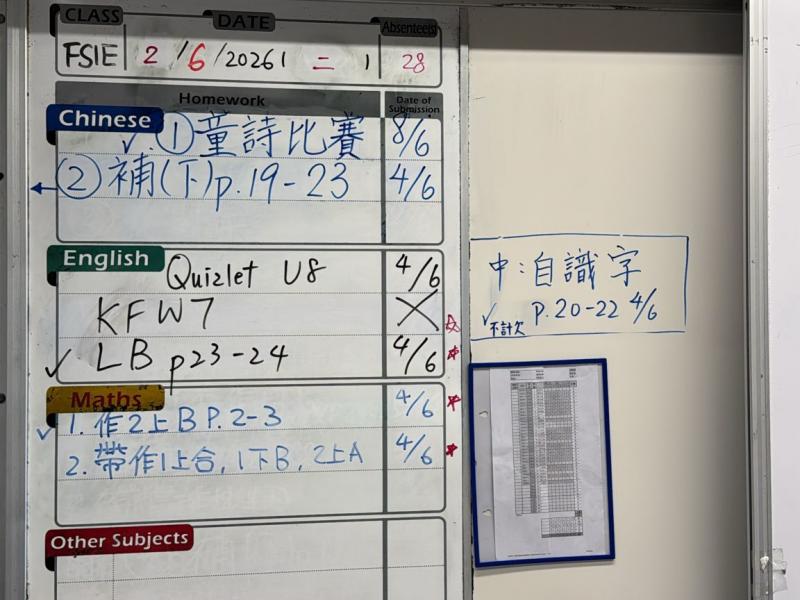 CLASS DATE Absentee(s)
FSIE 2/6/2026 | 二 | 28
Homework Date of Submission
Chinese
✓ ① 童詩比賽 8/6
← ② 補(下)p.19-23 4/6
English
Quizlet U8 4/6
KFW7 ╳ ☆
✓ LB p23-24 4/6 ★
Maths
✓ 1. 作2上B P.2-3 4/6 ★
2. 帶作1上合, 1下B, 2上A 4/6 ★
Other Subjects
中:自識字
✓ 不計欠 P.20-22 4/6